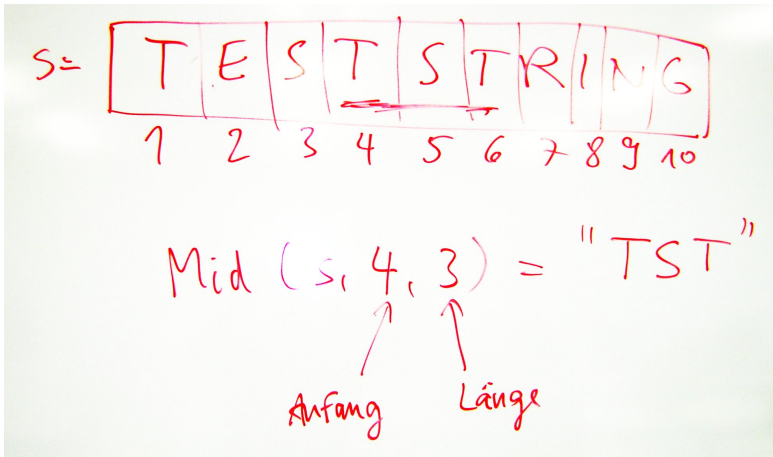 S= T E S T S T R I N G
1 2 3 4 5 6 7 8 9 10
Mid (s, 4, 3) = "TST"
Anfang Länge